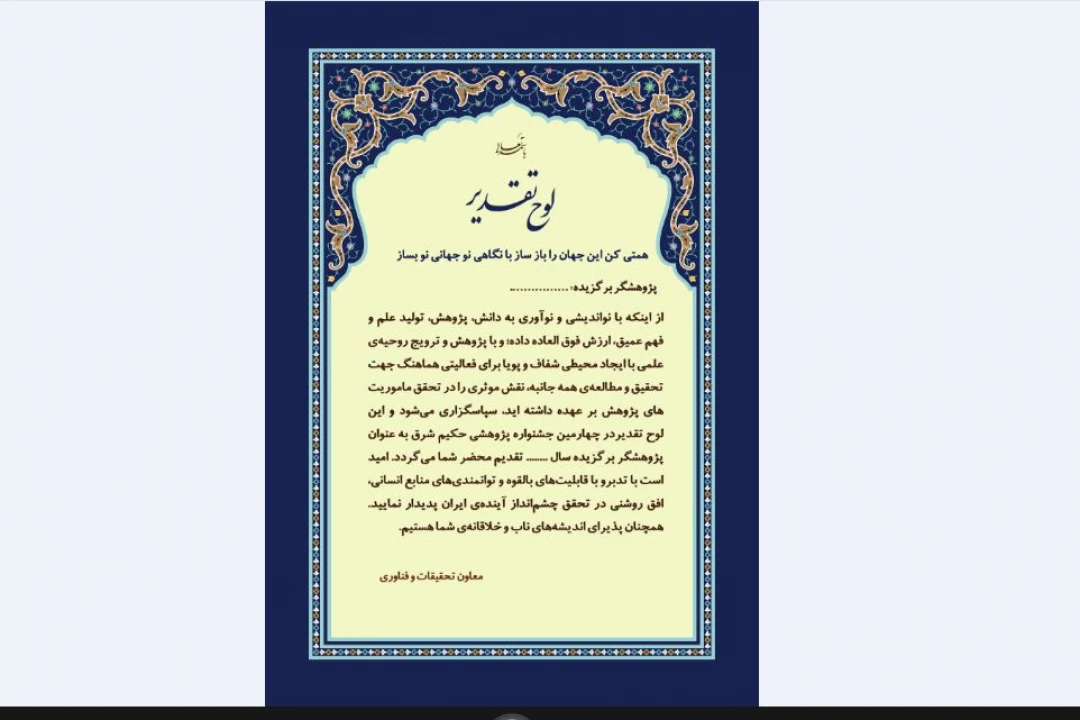 باسمه تعالی
لوح تقدیر
همتی کن این جهان را باز ساز با نگاهی نو جهانی نو بساز
پژوهشگر برگزیده: ................
از اینکه با نواندیشی و نوآوری به دانش، پژوهش، تولید علم و
فهم عمیق، ارزش فوق العاده داده؛ و با پژوهش و ترویج روحیه‌ی
علمی با ایجاد محیطی شفاف و پویا برای فعالیتی هماهنگ جهت
تحقیق و مطالعه‌ی همه جانبه، نقش موثری را در تحقق ماموریت
های پژوهش بر عهده داشته اید، سپاسگزاری می‌شود و این
لوح تقدیردر چهارمین جشنواره پژوهشی حکیم شرق به عنوان
پژوهشگر برگزیده سال ........ تقدیم محضر شما می‌گردد. امید
است با تدبرو با قابلیت‌های بالقوه و توانمندی‌های منابع انسانی،
افق روشنی در تحقق چشم‌انداز آینده‌ی ایران پدیدار نمایید.
همچنان پذیرای اندیشه‌های ناب و خلاقانه‌ی شما هستیم.
معاون تحقیقات و فناوری